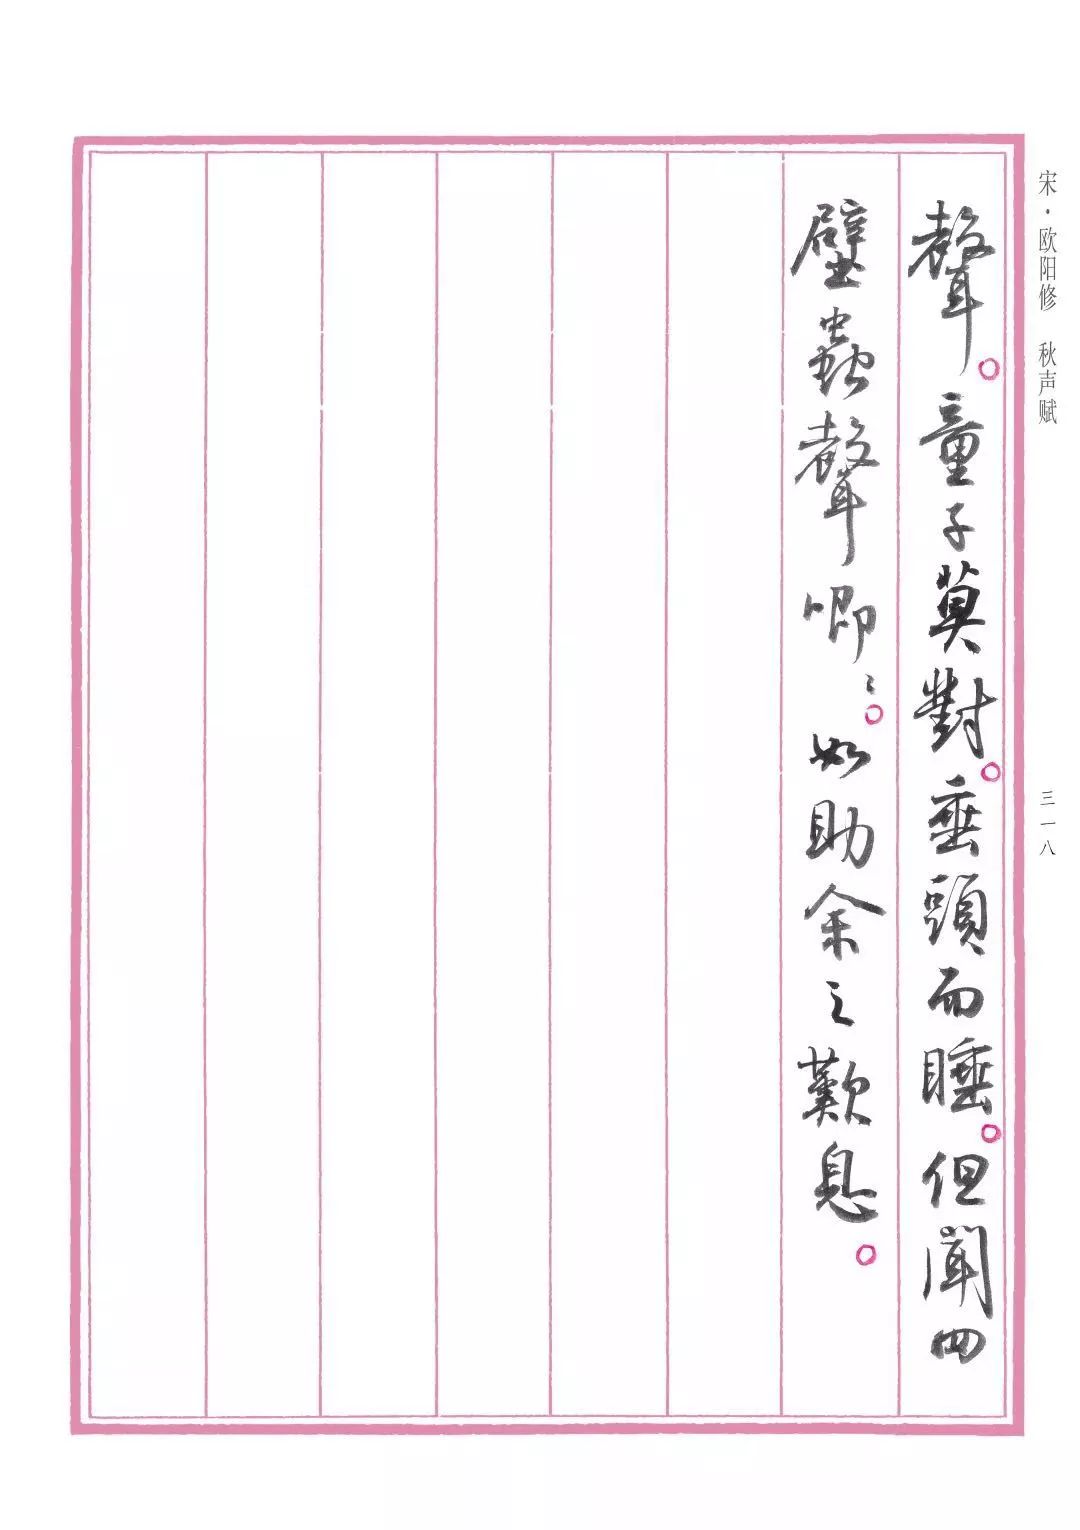 宋·欧阳修 秋声赋
三一八
聲。童子莫對。垂頭而睡。但聞四
壁蟲聲唧〻。如助余之歎息。